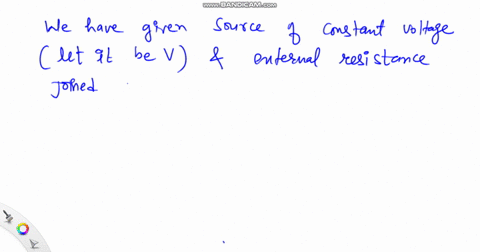 WWW.BANDICAM.COM
We have given source of constant voltage
(let it be V) & external resistance
joined